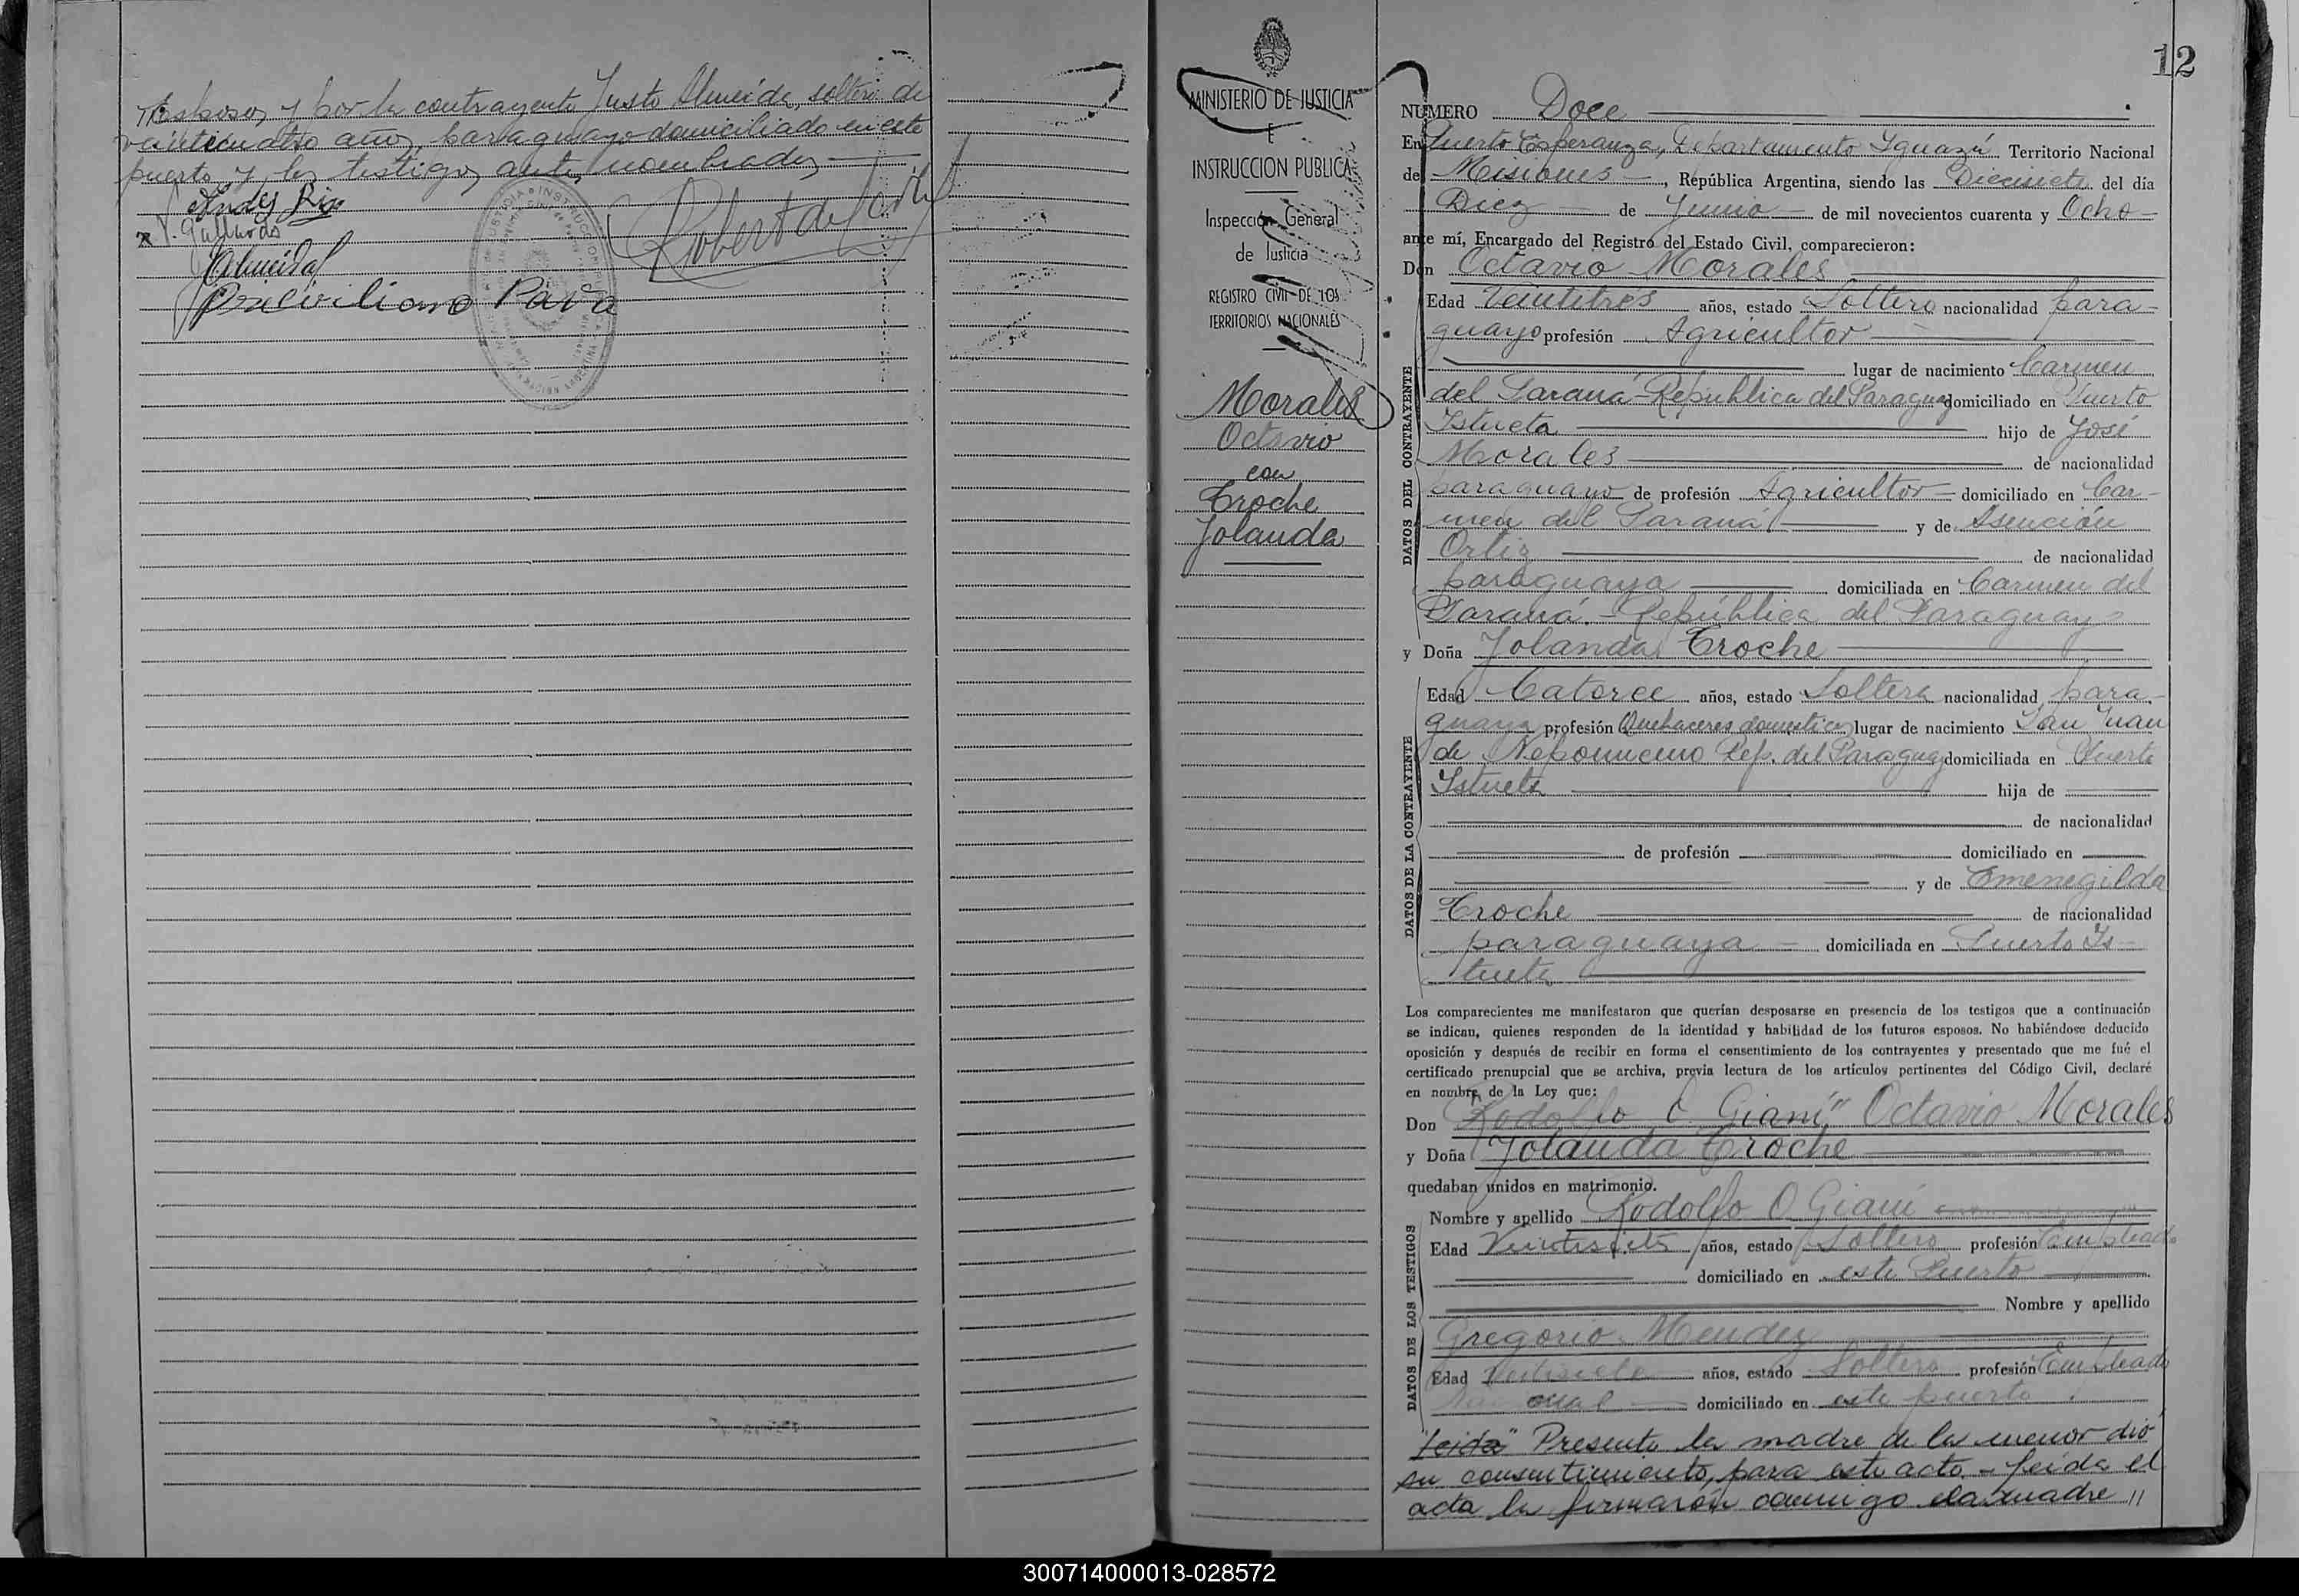 Esposos y por la contrayente Justo Almeida, soltero de
veinticuatro años, paraguayo domiciliado en este
puerto y los testigos antes nombrados
Andes Rios
V. Gallardo
Almeida
Priciliano Pava
Robert
MINISTERIO DE JUSTICIA
E
INSTRUCCION PUBLICA
Inspección General
de Justicia
REGISTRO CIVIL DE LOS
TERRITORIOS NACIONALES
Morales
Octavio
con
Troche
Jolanda
12
NUMERO Doce
En Puerto Esperanza, Departamento Iguazú Territorio Nacional
de Misiones, República Argentina, siendo las Diecisiete del día
Diez de Junio de mil novecientos cuarenta y Ocho
ante mí, Encargado del Registro del Estado Civil, comparecieron:
Don Octavio Morales
DATOS DEL CONTRAYENTE
Edad Veintitres años, estado Soltero nacionalidad para-
guayo profesión Agricultor
lugar de nacimiento Carmen
del Paraná-República del Paraguay domiciliado en Puerto
Istueta hijo de José
Morales de nacionalidad
paraguayo de profesión Agricultor domiciliado en Car-
men del Paraná y de Asención
Ortiz de nacionalidad
paraguaya domiciliada en Carmen del
Paraná.- República del Paraguay
y Doña Jolanda Troche
DATOS DE LA CONTRAYENTE
Edad Catorce años, estado Soltera nacionalidad para-
guaya profesión Quehaceres domesticos lugar de nacimiento San Juan
de Nepomuceno Rep. del Paraguay domiciliada en Puerto
Istueta hija de
de nacionalidad
de profesión domiciliado en
y de Emenegilda
Troche de nacionalidad
paraguaya domiciliada en Puerto Is-
tueta
Los comparecientes me manifestaron que querían desposarse en presencia de los testigos que a continuación
se indican, quienes responden de la identidad y habilidad de los futuros esposos. No habiéndose deducido
oposición y después de recibir en forma el consentimiento de los contrayentes y presentado que me fué el
certificado prenupcial que se archiva, previa lectura de los artículos pertinentes del Código Civil, declaré
en nombre de la Ley que:
Don Rodolfo O Giani" Octavio Morales
y Doña Jolanda Troche
quedaban unidos en matrimonio.
DATOS DE LOS TESTIGOS
Nombre y apellido Rodolfo O Giani
Edad Veintisiete años, estado Soltero profesión Empleado
domiciliado en este Puerto
Nombre y apellido
Gregorio Mendez
Edad años, estado Soltero profesión Empleado
domiciliado en este puerto
"Leida" Presente la madre de la menor dió
su consentimiento, para este acto.- Leida el
acta la firmaron conmigo la madre "
300714000013-028572